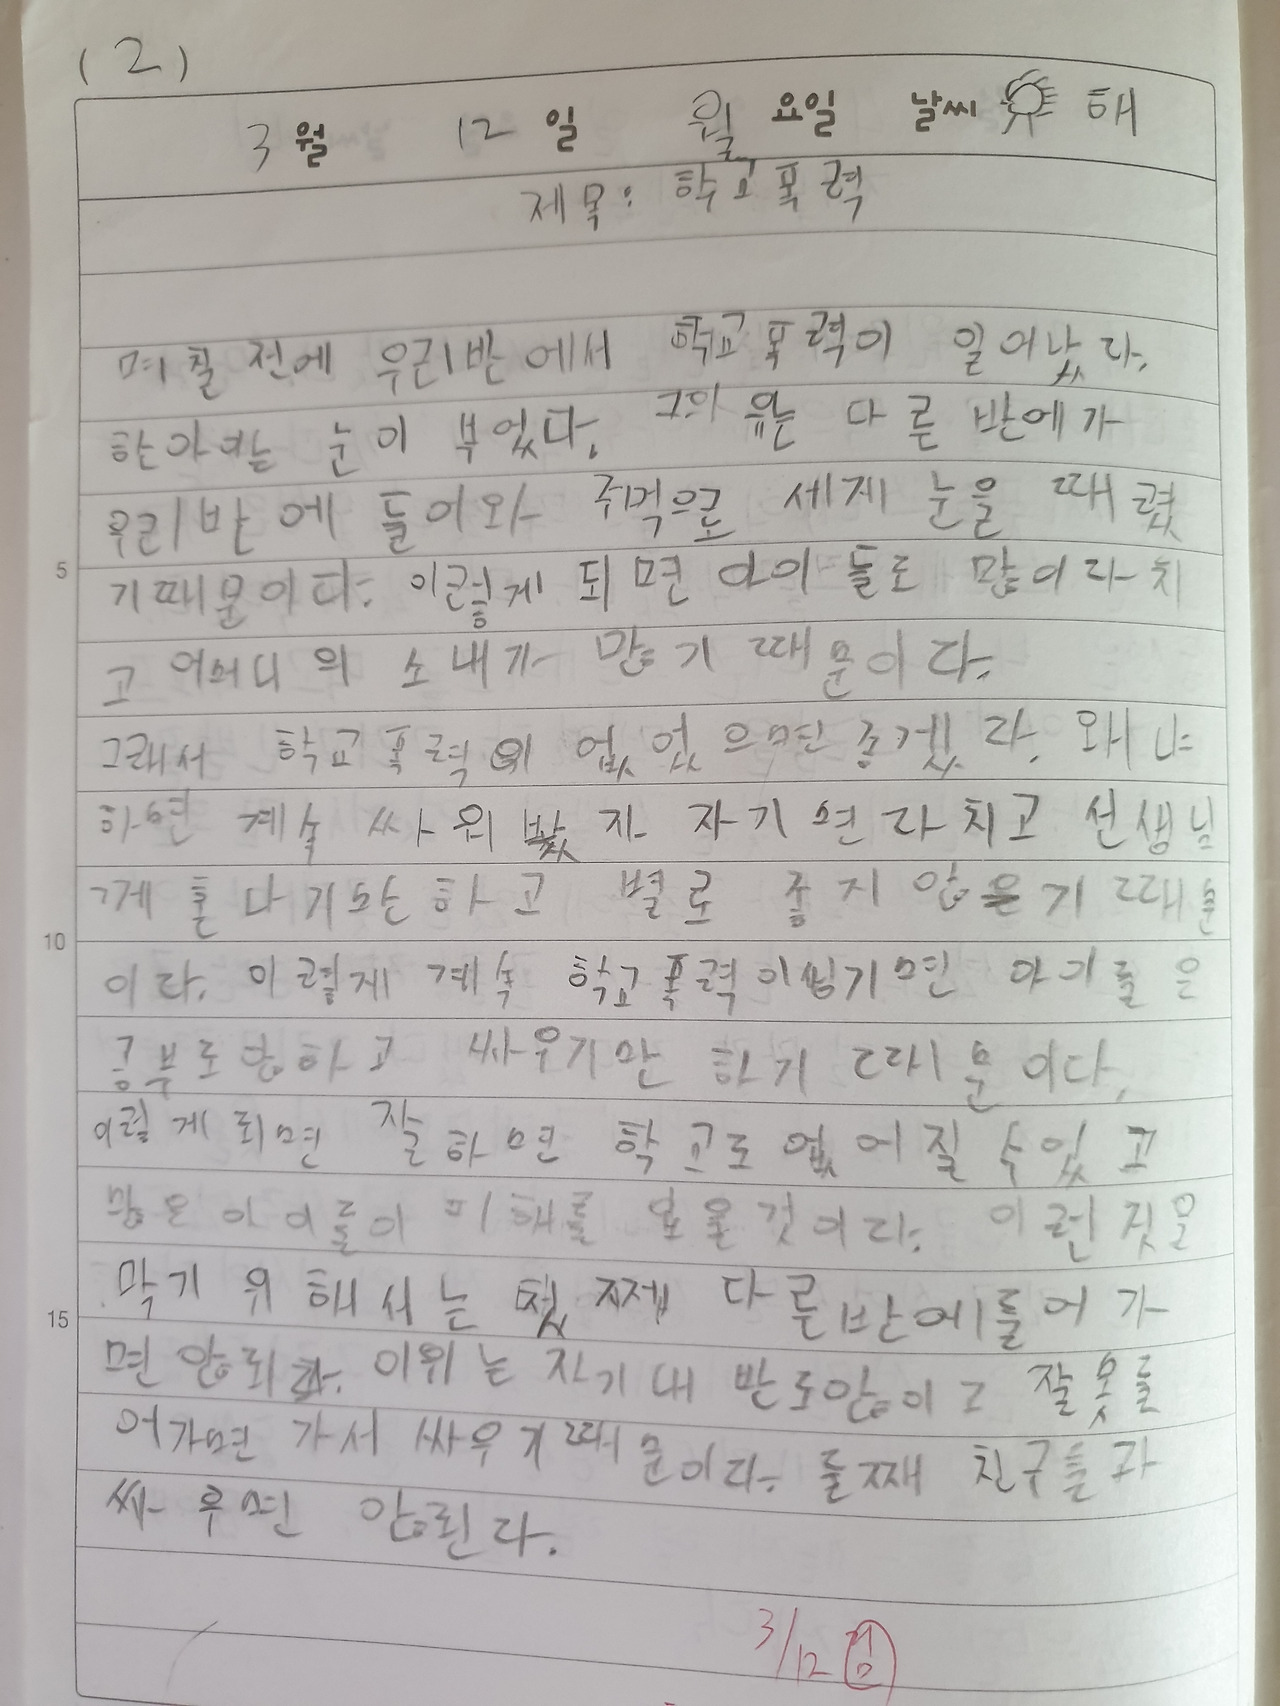 (2)
3 월 12 일 월 요일 날씨 해
제목: 학교폭력
며칠 전에 우리반에서 학교폭력이 일어났다.
한아이는 눈이 부었다. 그의 다른 반에가
우리반에 들어와 주먹으로 세게 눈을 때렸
기때문이다. 이렇게 되면 아이들도 많이다치
고 어머니의 소내가 많기 때문이다.
그래서 학교폭력이 없었으면 좋겠다. 왜냐
하면 계속 싸워봤자 자기면다치고 선생님
께 혼나기만하고 별로 좋지 않은기때문
이다. 이렇게 계속 학교폭력이생기면 아이들은
공부도않하고 싸우기만 하기 때문이다.
이렇게 되면 잘하면 학교도 없어질 수있고
많은 아이들이 피해를 입을것이다. 이런짓을
막기 위해서는 첫째 다른반에들어가
면 않되다. 이위는 자기내 반도않이고 잘못들
어가면 가서 싸우기때문이다. 둘째 친구들과
싸우면 않된다.
3/12 검